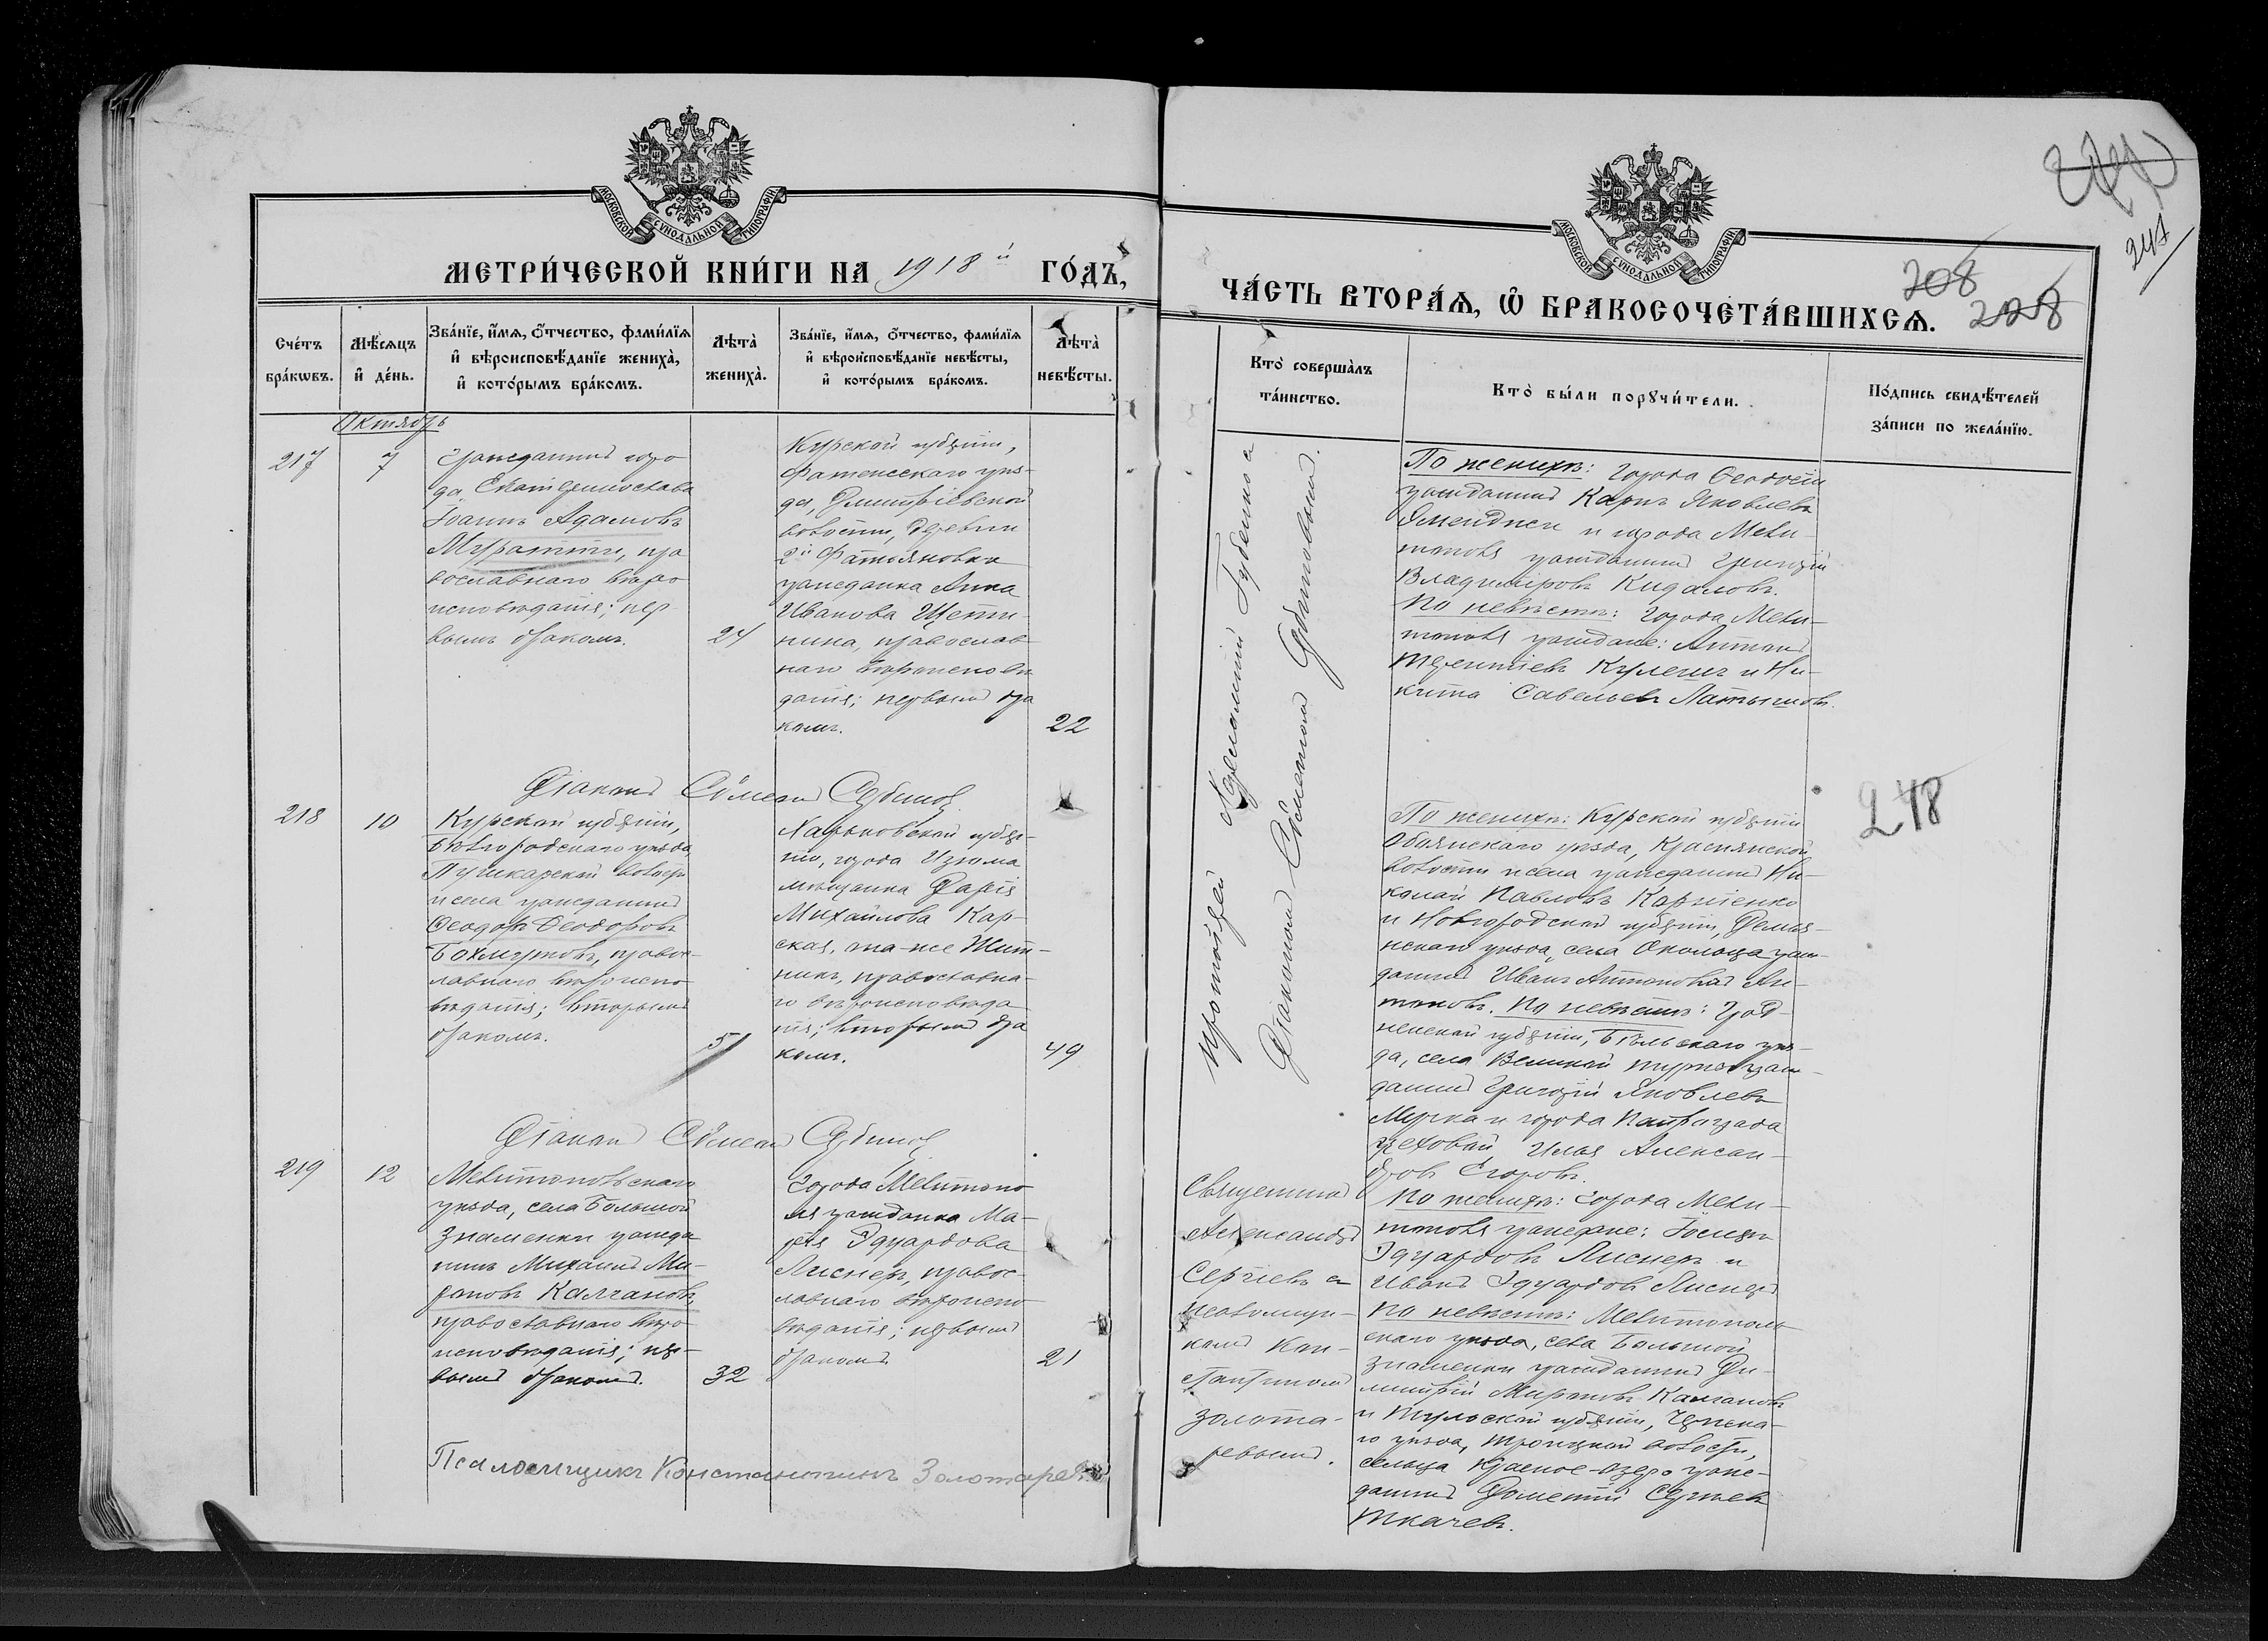 МОСКОВСКОЙ СУНОДАЛЬНОЙ ТИПОГРАФІИ
МЕТРИ́ЧЕСКОЙ КНИ́ГИ НА 1918й ГО́ДЪ,
Сче́тъ бра́кѡвъ.
Мѣ́сѧцъ и҆ де́нь.
Зва́нїе, и҆́мѧ, ѻ҆́тчество, фами́лїѧ
и҆ вѣроисповѣ́данїе жениха̀,
и҆ кото́рымъ бра́комъ.
Лѣта̀ жениха̀.
Зва́нїе, и҆́мѧ, ѻ҆́тчество, фами́лїѧ
и҆ вѣроисповѣ́данїе невѣ́сты,
и҆ кото́рымъ бра́комъ.
Лѣта̀ невѣ́сты.
Октябрь
217
7
гражданинъ горо-
да Екатеринослава
Іоаннъ Адамовъ
Муратти, пра
вославнаго вѣро
исповѣданія; пер-
вымъ бракомъ.
24
Курской губерніи,
Фатежскаго уѣз-
да, Дмитріевской
волости, деревни
2й Фатьяновки
гражданка Анна
Иванова Щети-
нина, православ-
наго вѣроисповѣ
данія; первымъ бра
комъ.
22
Діаконъ Сѵмеонъ
218
10
Курской губерніи,
Бѣлгородскаго уѣзда,
Пушкарской волости
и села гражданинъ
Ѳеодоръ Ѳеодоровъ
Бахмуровъ, правос-
лавнаго вѣроиспо
вѣданія; вторымъ
бракомъ.
51
Харьковской губер-
ніи, города Изюма
мѣщанка Дарія
Михайлова Кар-
ская, она-же Жит-
никъ, православна-
го вѣроисповѣда
нія; вторымъ бра
комъ.
49
Діаконъ Сѵмеонъ
219
12
Мелитопольскаго
уѣзда, села Большой
Знаменки гражда
нинъ Михаилъ Ми-
роновъ Калгановъ,
православнаго вѣро
исповѣданія; пер-
вымъ бракомъ.
32
Города Мелитопо
ля гражданка Ма-
рія Эдуардова
Лиснеръ, правос-
лавнаго вѣроиспо
вѣданія; первымъ
бракомъ.
21
Псаломщикъ Константинъ Золотаревъ
МОСКОВСКОЙ СУНОДАЛЬНОЙ ТИПОГРАФІИ
ЧА́СТЬ ВТОРА́Ѧ, Ѽ БРАКОСОЧЕТА́ВШИХСѦ.
208
228
247
Кто̀ соверша̀лъ та́инство.
Кто̀ бы́ли порꙋчи́тели.
По́дпись свидѣ́телей
за́писи по жела́нїю.
Протоіерей
Діакономъ Сѵмеономъ
По женихѣ: города Ѳеодосіи
гражданинъ Карпъ Яковлевъ
и города Мели-
тополя гражданинъ Григорій
Владиміровъ Кидаловъ.
По невѣстѣ: города Мели-
тополя граждане: Антонъ
Терентіевъ Кулешъ и Ни-
кита Савельевъ Латышовъ.
248
По женихѣ: Курской губерніи
Обоянскаго уѣзда, Краснянской
волости и села гражданинъ Ни-
колай Павловъ Карпенко
и Новгородской губерніи, Демян-
скаго уѣзда, села граж-
данинъ Иванъ Антоновъ Ан-
тоновъ. По невѣстѣ: Грод-
ненской губерніи, Бѣльскаго уѣз-
да, села граж-
данинъ Григорій Яковлевъ
и города Павлограда
цеховой Илья Алексан-
дровъ Егоровъ.
Священникъ
Александръ
Сергіевъ съ
псаломщи-
комъ Кон-
стантиномъ
Золота-
ревымъ.
По женихѣ: города Мели-
тополя граждане: Іосифъ
Эдуардовъ Лиснеръ и
Иванъ Эдуардовъ Лиснеръ
По невѣстѣ: Мелитополь-
скаго уѣзда, села Большой
Знаменки гражданинъ Ди-
митрій Мироновъ Калгановъ
и Тульской губерніи, Чернска-
го уѣзда, Троицкой волости,
сельца Красное-озеро граж-
данинъ Дометій Сергѣевъ
Ткачевъ.